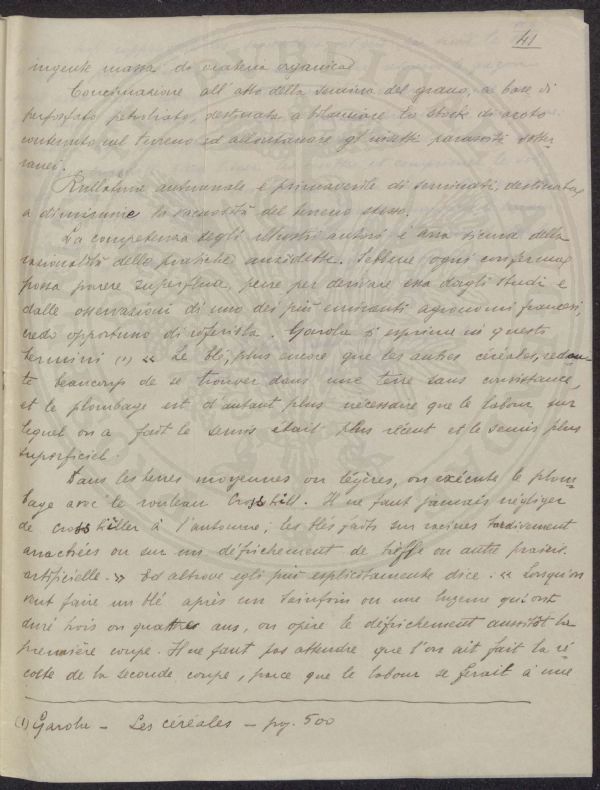 41
ingente massa di materia organica
Concimazione all'atto della semina del grano, a base di
perfosfato petroliato, destinata a bilanciare lo stock di azoto
contenuto nel terreno ed allontanare gl'insetti parassiti sotter
ranei.
Rullatura autunnale e primaverile di seminati, destinata
a diminuire la sofficità del terreno stesso.
La competenza degli illustri autori è assai sicura della
razionalità delle pratiche anzidette. Sebbene ogni conferma
possa parere superflua, pure per derivare essa dagli studi e
dalle osservazioni di uno dei più eminenti agronomi francesi,
credo opportuno di riferirla. Garola si esprime in questi
termini (1) « Le blé, plus encore que les autres céréales, redou
te beaucoup de se trouver dans une terre sans consistance,
et le plombage est d'autant plus nécessaire que le labour sur
lequel on a fait le semis était plus récent et le semis plus
superficiel.
Dans les terres moyennes ou légères, on exécute le plom
bage avec le rouleau Crosskill. Il ne faut jamais négliger
de crosskiller à l'automne, les blés faits sur racines tardivement
arrachées ou sur un défrichement de trèfle ou autre prairie
artificielle. » Ed altrove egli più esplicitamente dice: « Lorsqu'on
veut faire un blé après un sainfoin ou une luzerne qui ont
duré trois ou quatre ans, on opère le défrichement aussitôt la
première coupe. Il ne faut pas attendre que l'on ait fait la ré
colte de la seconde coupe, parce que le labour se ferait à une
(1) Garola - Les céréales - pg. 500